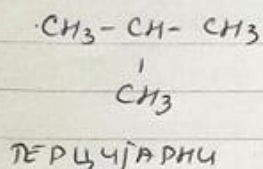 CH3 - CH - CH3
|
CH3
ТЕРЦИЈАРНИ